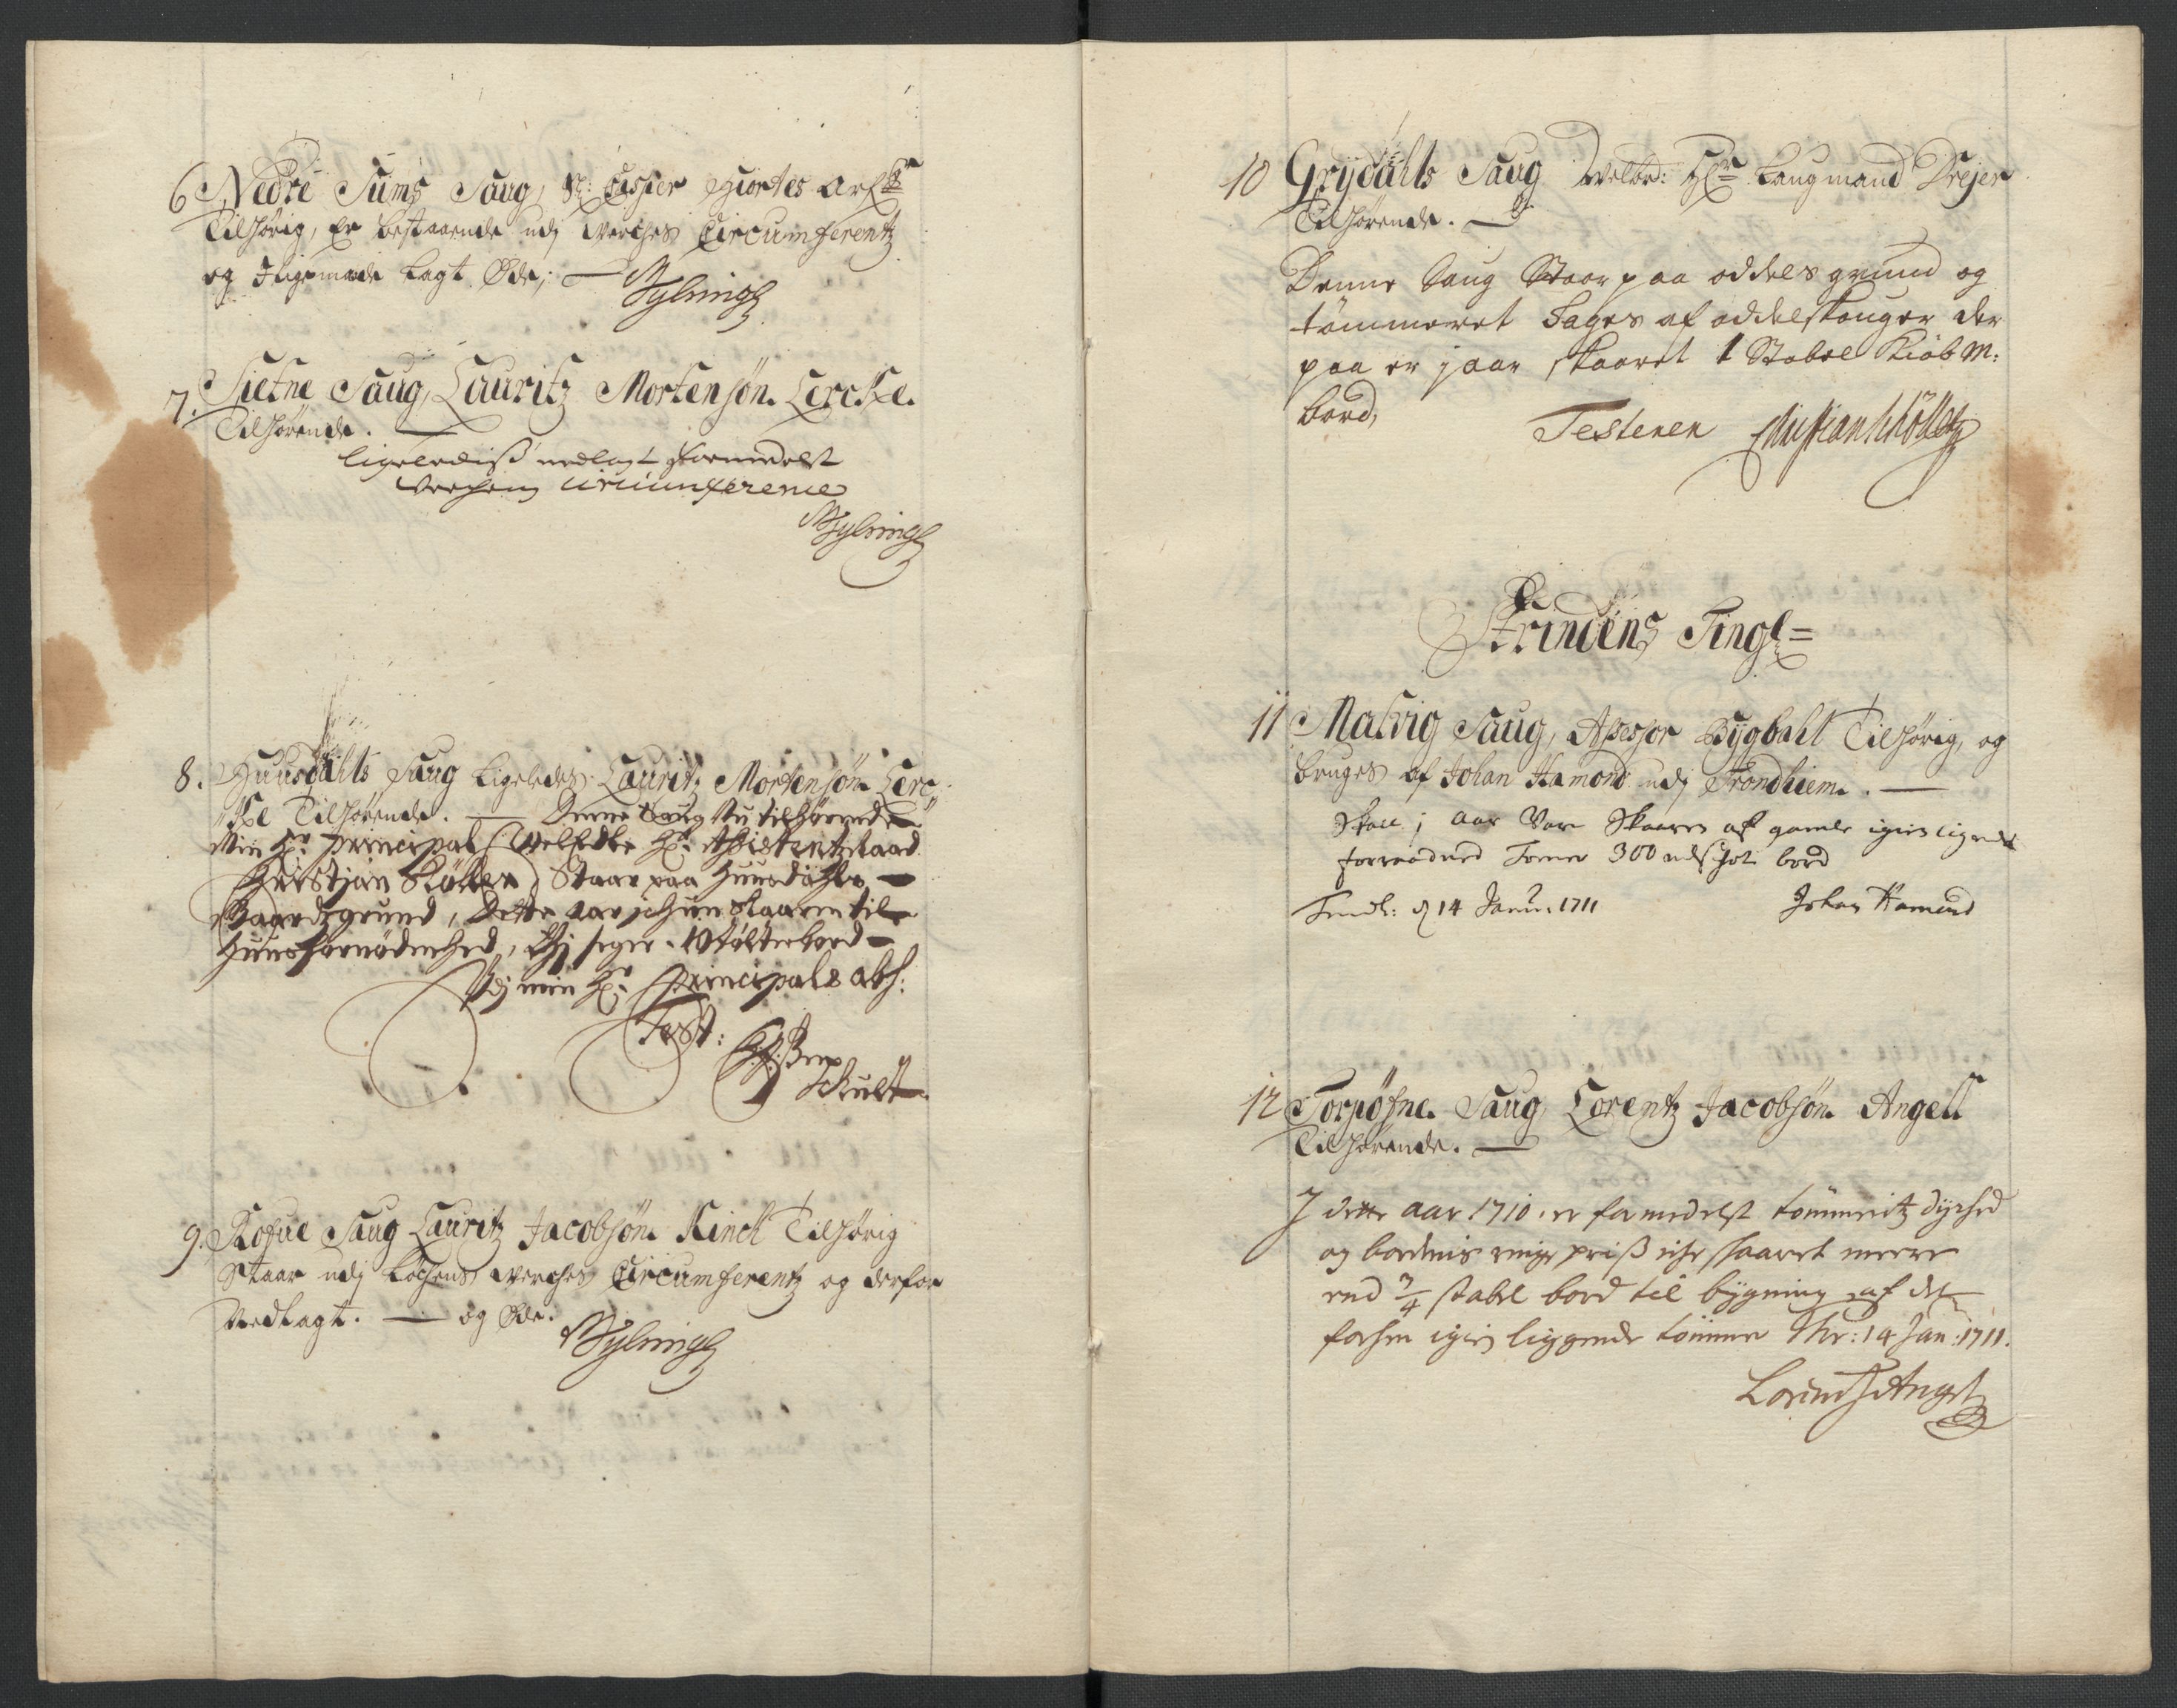 6 Nedre Sums Saug, Sl: Casper Hiortes Arf:
Tilhørig, Er bestaaende udj Werches Circumferentz
og Ligemaade lagt Øde;
Wylmingh
7. Sietne Saug, Lauritz Mortensøn Lerche
Tilhørende.
ligelediss nedlagt formedelst
Verchens Circumference
Wylmingh
8. Huusdahls Saug ligeledes Lauritz Mortensøn Ler-
che Tilhørende. Denne Saug Nu tilhørende
Min Hr. Principal (Velædle Hr. Assistentzraad
Christian Skøller) Staar paa Huusdahls
Gaardsgrund, Dette aar ichun Skaaren til
Huusfornødenhed, 10 tølter bord
Paa min Hr. Principals
Test:
Schultt
9. Kofue Saug Lauritz Jacobsøn Kinch Tilhørig
Staar udj Løchens Werches Circumferentz og derfor
Nedlagt. og Øde.
Wylmingh
10 Grydahls Saug Welbr: Hr. Laugmand Drejer
Tilhørende.
Denne Saug Staar paa oddels grund og
tømmeret Tages af oddelskouger der
paa er j aar skaaret 1 Stabel Kiøb M:
bord,
Testerer Christian Schøller
Strindens Tingl=
11 Malvig Saug, Assessor Bygball Tilhørig, og
bruges af Johan Hamond udj Trondhiem.
Skall i aar Vere Skaaren af gamle igien ligende
forraadned Tømer 300 udschot bord
Trondh: d 14 Janu: 1711
Johan Hamond
12 Torpøfne Saug Lorentz Jacobsøn Angell
Tilhørende.
I dette aar 1710. er formedelst tømmeritz dyrhed
og bordenis ringe priss iche skaaret meere
end 3/4 stabel bord til bygning af det
forhen igien liggende tømmer Thr: 14 Jan: 1711.
Lorentz Angel